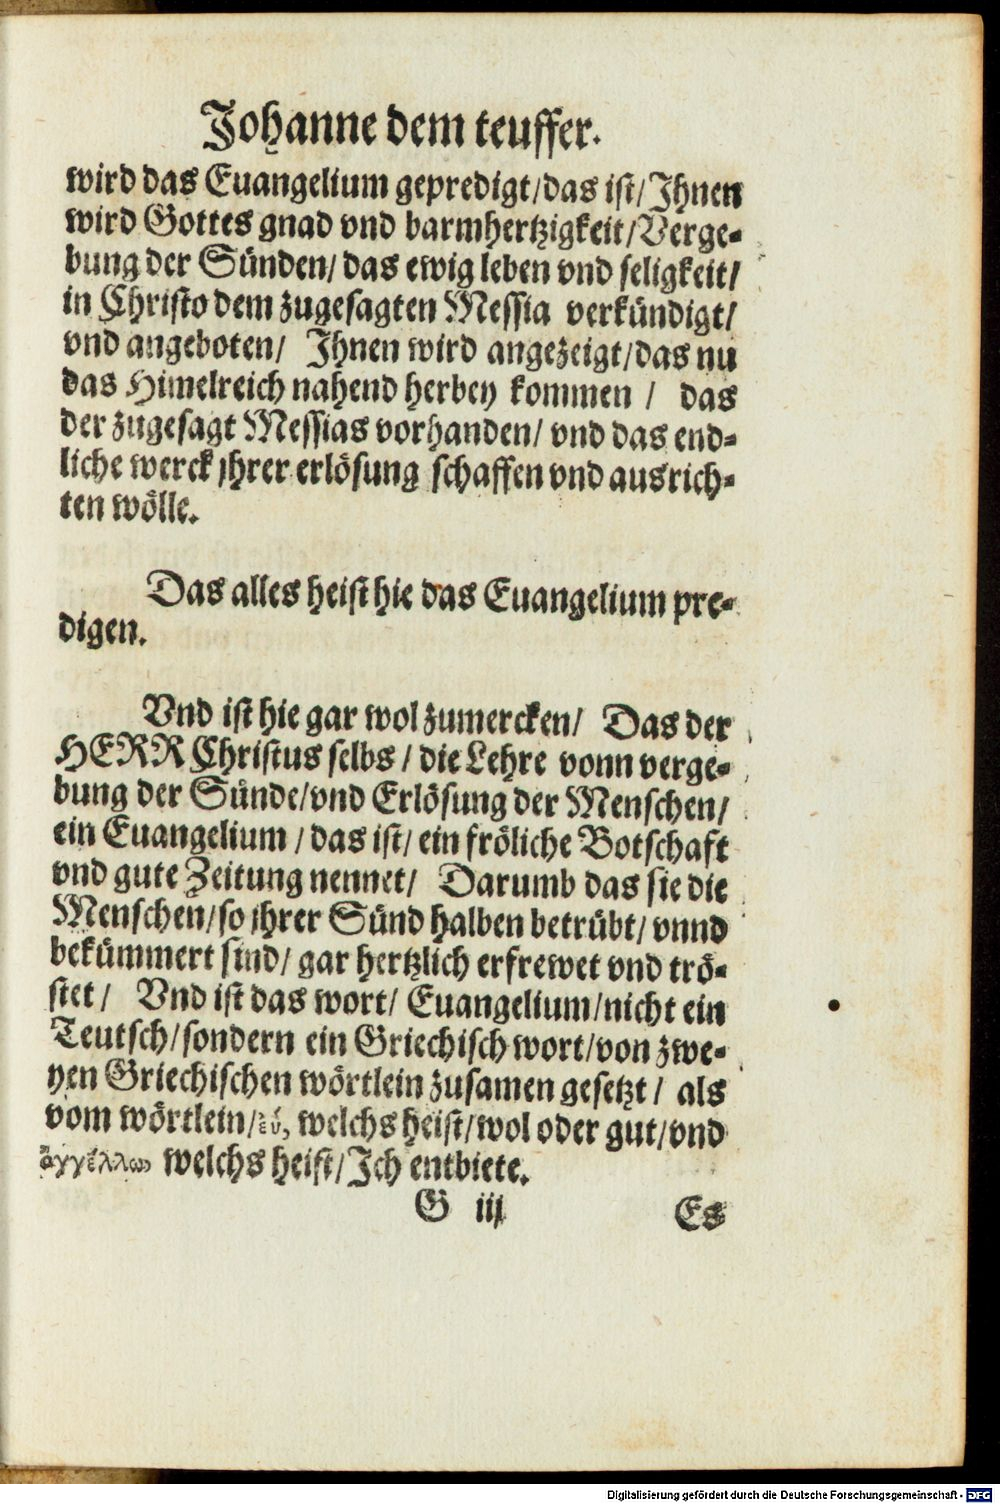 Johanne dem teuffer.
wird das Euangelium gepredigt/das ist/Ihnen
wird Gottes gnad vnd barmhertzigkeit/Verge-
bung der Sünden/ das ewig leben vnd seligkeit/
in Christo dem zugesagten Messia verkündigt/
vnd angeboten/ Ihnen wird angezeigt/das nu
das Himelreich nahend herbey kommen / das
der zugesagt Messias vorhanden/ vnd das end-
liche werck jhrer erlösung schaffen vnd ausrich-
ten wölle.
Das alles heist hie das Euangelium pre-
digen.
Vnd ist hie gar wol zumercken/ Das der
HERR Christus selbs / die Lehre vonn verge-
bung der Sünde/vnd Erlösung der Menschen/
ein Euangelium / das ist/ ein fröliche Botschaft
vnd gute Zeitung nennet/ Darumb das sie die
Menschen/so jhrer Sünd halben betrübt/ vnnd
bekümmert sind/ gar hertzlich erfrewet vnd trö-
stet / Vnd ist das wort/ Euangelium/nicht ein
Teutsch/sondern ein Griechisch wort/von zwe-
yen Griechischen wörtlein zusamen gesetzt / als
vom wörtlein/εὐ, welchs heist/wol oder gut/vnd
ἀγγέλλω welchs heist/Ich entbiete.
G iij Es
Digitalisierung gefördert durch die Deutsche Forschungsgemeinschaft - DFG